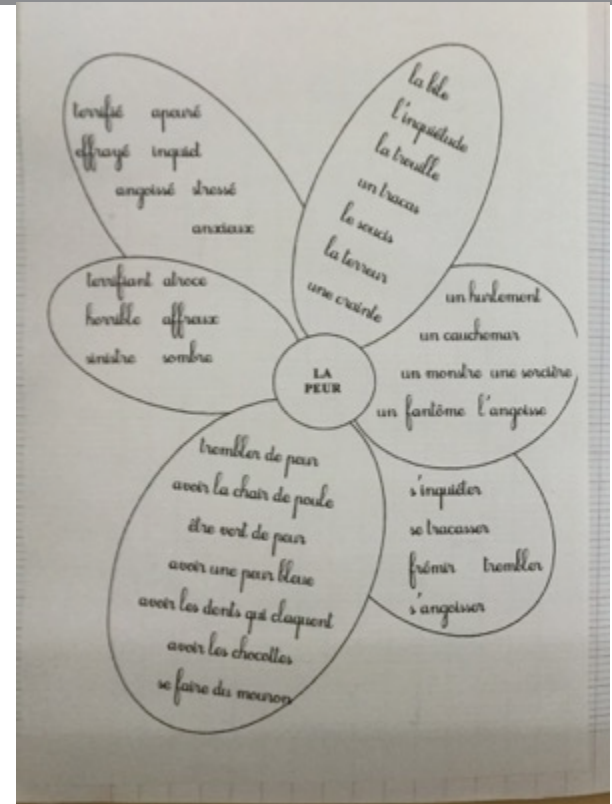 terrifié apeuré
effrayé inquiet
angoissé stressé
anxieux
la bile
l'inquiétude
la trouille
un tracas
le soucis
la terreur
une crainte
terrifiant atroce
horrible affreux
sinistre sombre
un hurlement
un cauchemar
un monstre une sorcière
un fantôme l'angoisse
LA
PEUR
trembler de peur
avoir la chair de poule
être vert de peur
avoir une peur bleue
avoir les dents qui claquent
avoir les chocottes
se faire du mouron
s'inquiéter
se tracasser
frémir trembler
s'angoisser